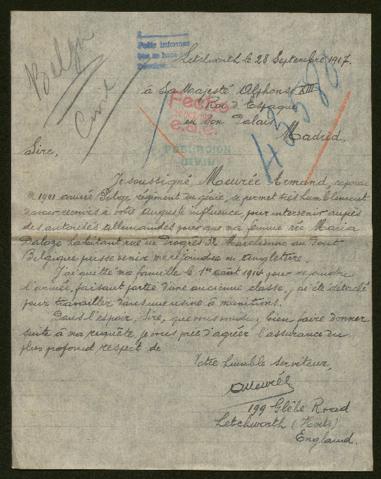 Letchworth le 28 Septembre 1917.
Belge
Civil
à Sa Majesté Alphonse XIII
Roi d'Espagne
en son Palais
Madrid.
43580
Fecha
POBLACION
CIVIL
Sire,
Je soussigné Meurée Armand,
armée Belge, régiment du génie, se permet très humblement
d'avoir recours à votre Auguste influence pour intervenir auprès
des autorités allemandes pour que ma femme née Maria
habitant rue du Progrès 32 Marchienne au Pont
Belgique puisse venir me rejoindre en Angleterre.
J'ai quitté ma famille le 1er août 1914 pour rejoindre
l'armée, faisant partie d'une ancienne classe, j'ai été détaché
pour travailler dans une usine à munitions.
Dans l'espoir, Sire, que vous voudrez bien faire donner
suite à ma requête, je vous prie d'agréer l'assurance du
plus profond respect de
Votre humble serviteur,
AMeurée
199 Glebe Road
Letchworth (Herts)
England.